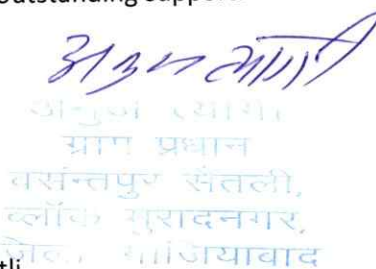 outstanding support.
अनुज त्यागी
अनुज त्यागी
ग्राम प्रधान
वसन्तपुर सैंतली,
ब्लॉक मुरादनगर,
जिला गाजियाबाद
tli